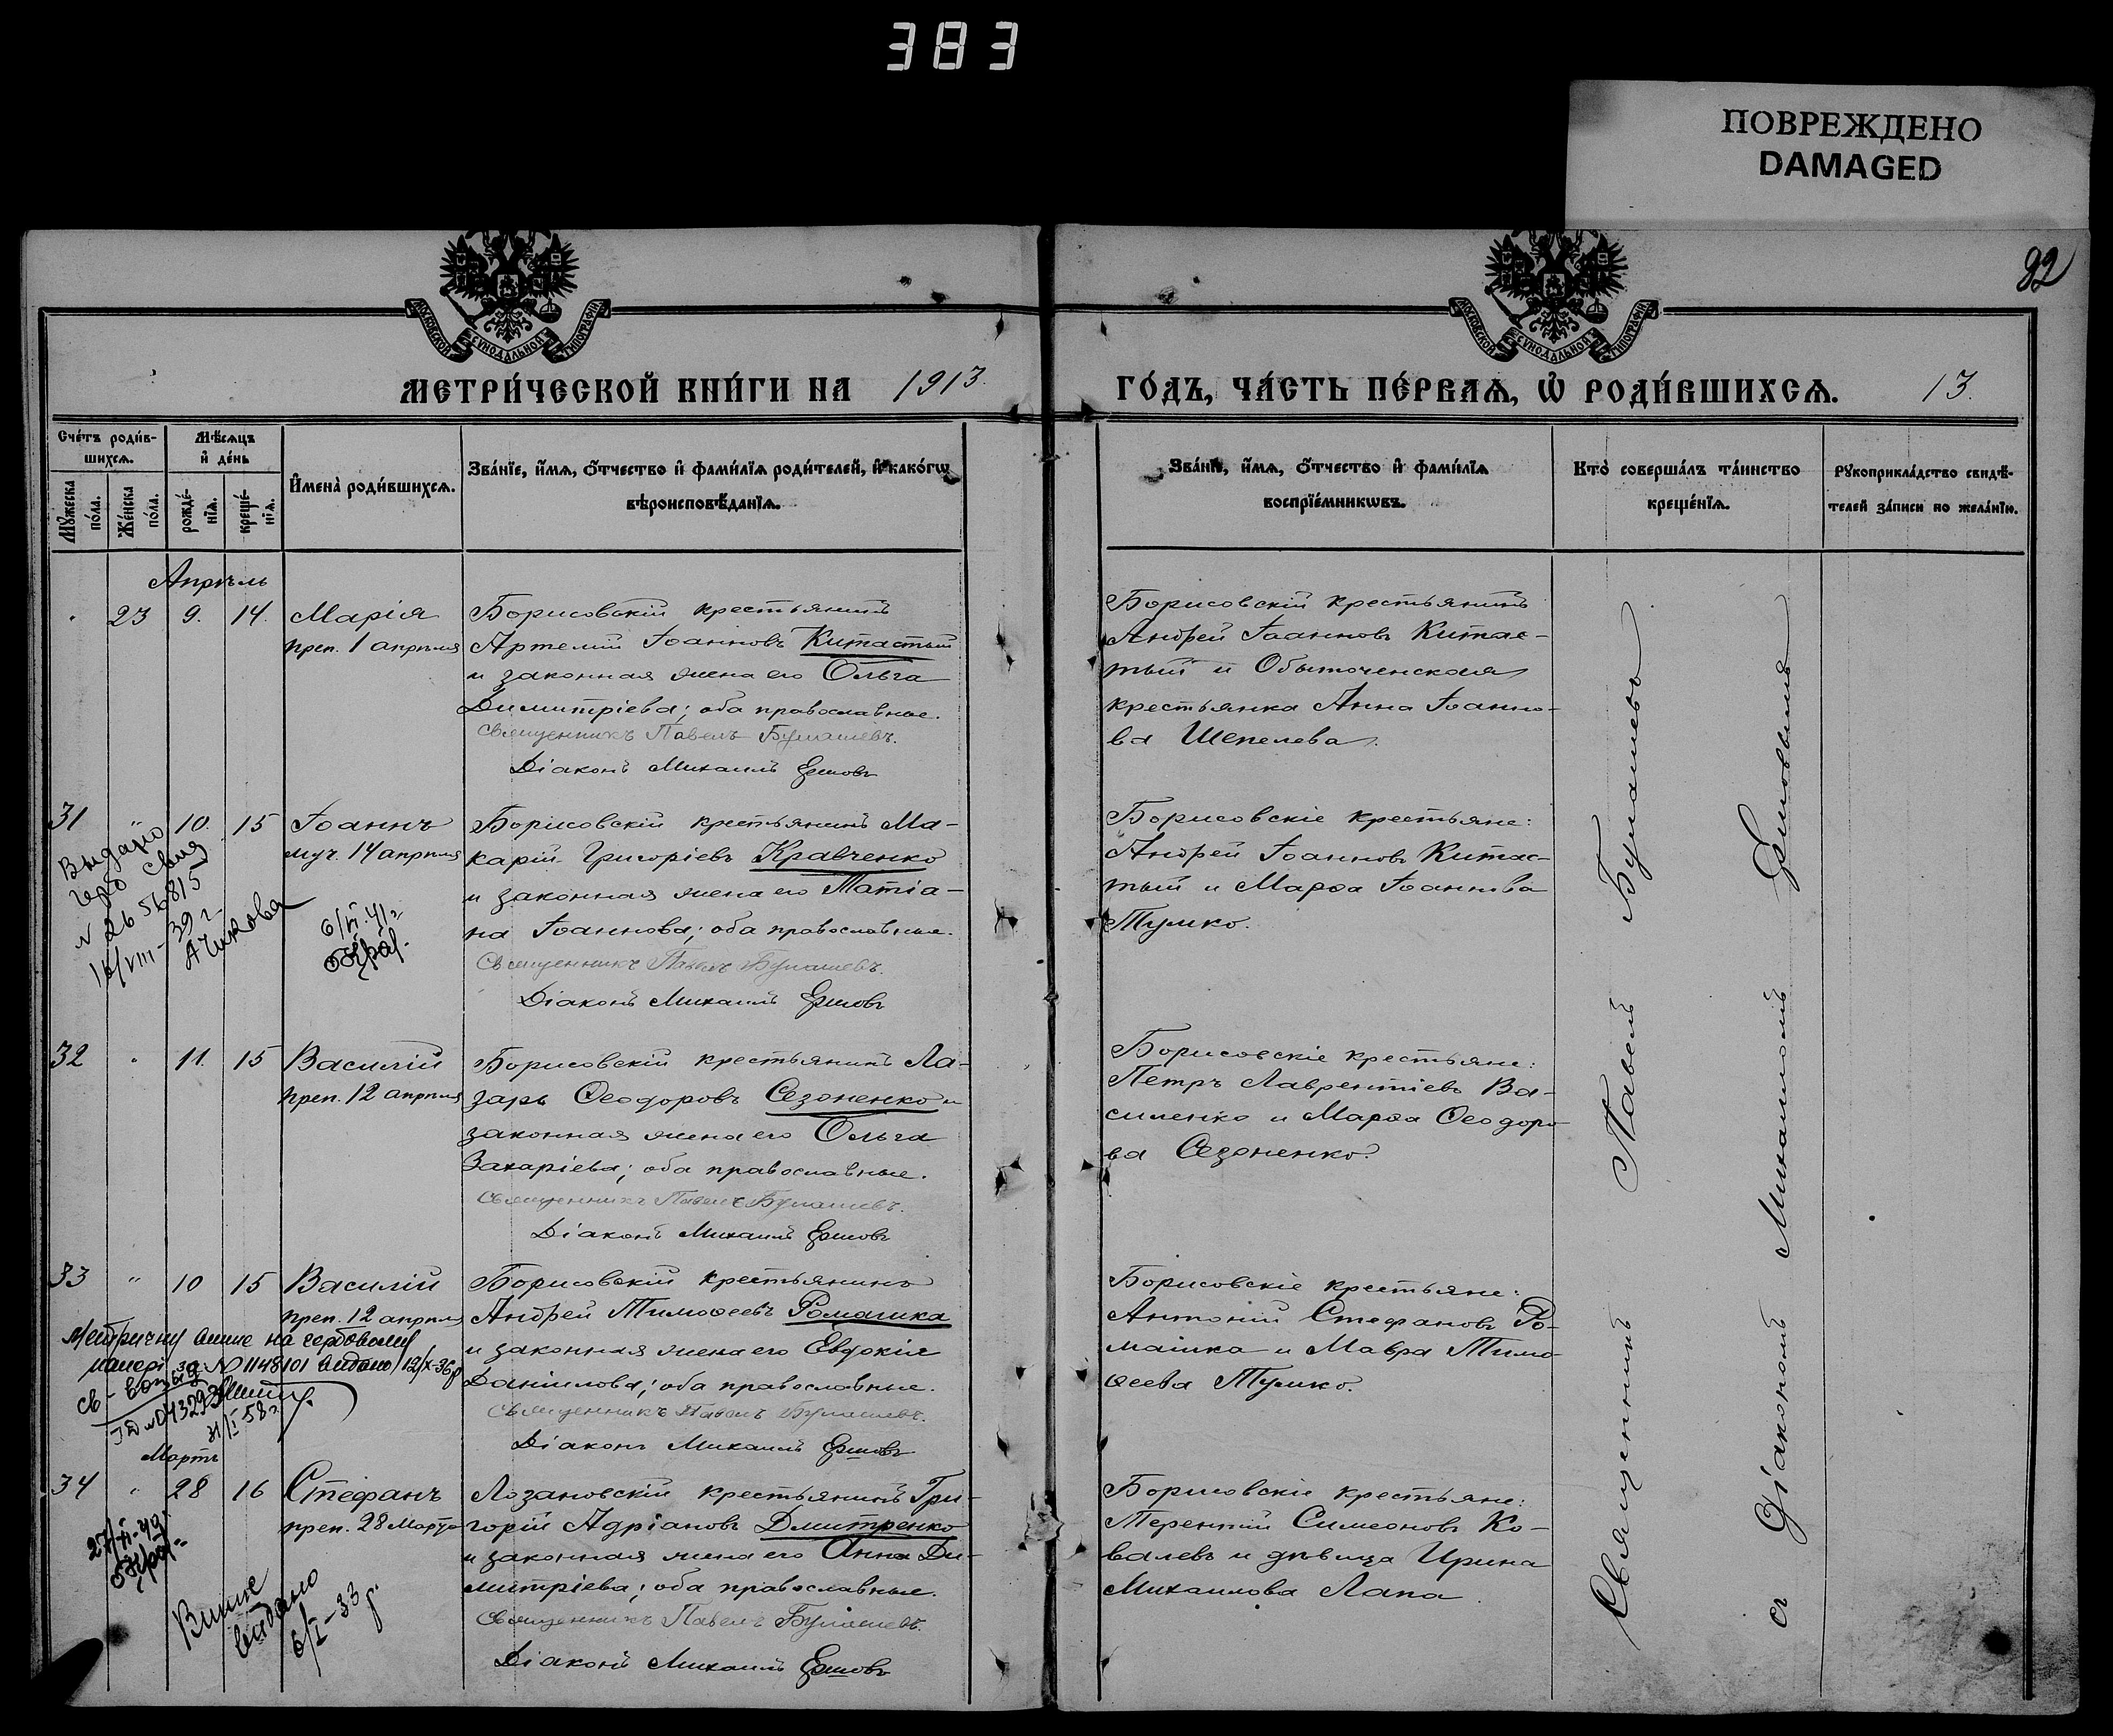 383
ПОВРЕЖДЕНО
DAMAGED
82
МОСКОВСКОЙ СѴНОДАЛЬНОЙ ТИПОГРАФІИ
МОСКОВСКОЙ СѴНОДАЛЬНОЙ ТИПОГРАФІИ
МЕТРИ́ЧЕСКОЙ КНИ́ГИ НА 1913.
ГО́ДЪ, ЧА́СТЬ ПЕ́РВАѦ, Ѡ҆ РОДИ́ВШИХСѦ. 13.
Сче́тъ роди́в-
шихсѧ.
Мѣ́сѧцъ
и҆ де́нь
Мꙋ́жеска
по́ла.
Же́нска
по́ла.
рожде́-
нїѧ.
креще́-
нїѧ.
И҆мена̀ роди́вшихсѧ.
Зва́нїе, и҆́мѧ, ѻ҆́тчество и҆ фами́лїѧ роди́телей, и҆ како́гѡ
вѣроисповѣ́данїѧ.
Зва́нїе, и҆́мѧ, ѻ҆́тчество и҆ фами́лїѧ
воспрїе́мникѡвъ.
Кто̀ соверша́лъ та́инство
креще́нїѧ.
Рꙋкоприкла́дство свидѣ́-
телей за́писи по жела́нїю.
Апрѣль
23 9. 14. Марія
преп. 1 апрѣля
Борисовскій крестьянинъ
Артемій Іоанновъ Китастый
и законная жена его Ольга
Димитріева; оба православные.
Священникъ Павелъ Бумашевъ.
Діаконъ Михаилъ Ершовъ
Борисовскій крестьянинъ
Андрей Іоанновъ Китас-
тый и Обыточенская
крестьянка Анна Іоанно-
ва Шепелева.
31 " 10. 15 Іоаннъ
муч. 14 апрѣля
Выдано
герб свид
N 2656815
16/VIII-39 г.
Ачкова
6/VI.41г
Борисовскій крестьянинъ Ма-
карій Григоріевъ Кравченко
и законная жена его Татіа-
на Іоаннова; оба православные.
Священникъ Павелъ Бумашевъ.
Діаконъ Михаилъ Ершовъ
Борисовскіе крестьяне:
Андрей Іоанновъ Китас-
тый и Марѳа Іоаннова
Тумко.
32 " 11. 15 Василій
преп. 12 апрѣля
Борисовскій крестьянинъ Ла-
зарь Ѳеодоровъ Сезоненко и
законная жена его Ольга
Захаріева; оба православные.
Священникъ Павелъ Бумашевъ.
Діаконъ Михаилъ Ершовъ
Борисовскіе крестьяне:
Петръ Лаврентіевъ Ва-
силенко и Марѳа Ѳеодоро-
ва Сезоненко.
33 " 10 15 Василій
преп. 12 апрѣля
Метричну випис на гербовому
папері за N 1148101 видано 12/X-36р
31/I 58 г.
Борисовскій крестьянинъ
Андрей Тимоѳеевъ Ромашка
и законная жена его Евдокія
Даніилова; оба православные.
Священникъ Павелъ Бумашевъ.
Діаконъ Михаилъ Ершовъ
Борисовскіе крестьяне:
Антоній Стефановъ Ро-
машка и Мавра Тимо-
ѳеева Тумко.
Мартъ
34 " 28 16 Стефанъ
преп. 28 Марта
Випис
видано
6/I-33 р.
Лозановскій крестьянинъ Гри-
горій Адріановъ Дмитренко
и законная жена его Анна Ди-
митріева; оба православные.
Священникъ Павелъ Бумашевъ.
Діаконъ Михаилъ Ершовъ
Борисовскіе крестьяне:
Терентій Симеоновъ Ко-
валевъ и дѣвица Ирина
Михаилова Лапа
Священникъ Павелъ Бумашевъ
съ Діакономъ Михаиломъ Ершовымъ